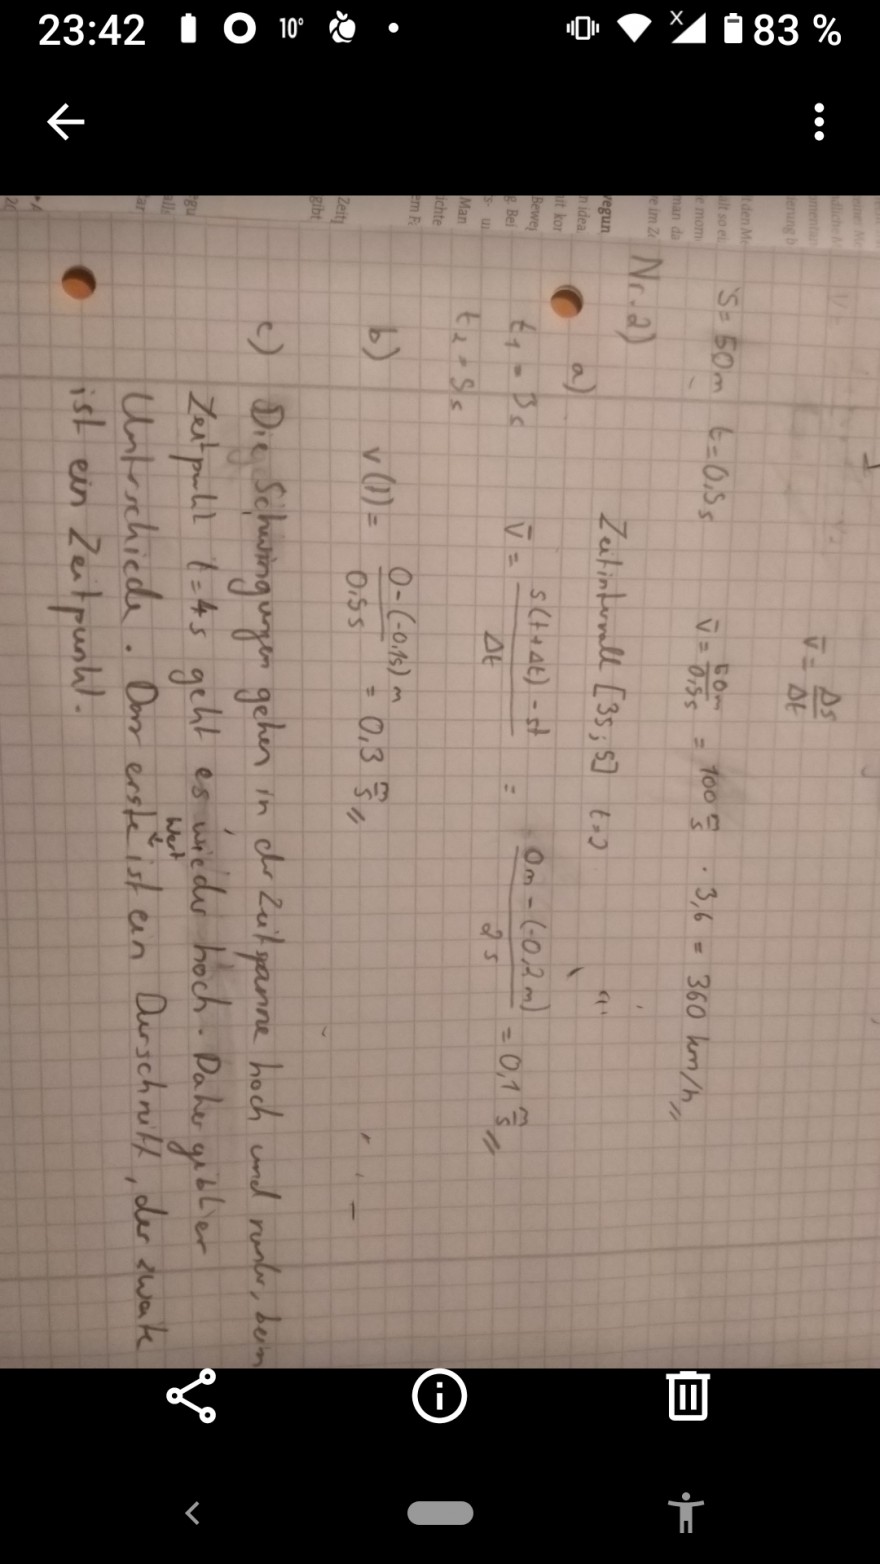 23:42
10°
83 %
v̄ = Δs/Δt
s = 50m t = 0,5s v̄ = 50m/0,5s = 100 m/s · 3,6 = 360 km/h
Nr. 2)
a) Zeitintervall [3s; 5]
t₁ = 3s v̄ = s(t+Δt) - st / Δt = 0m - (-0,2m) / 2s = 0,1 m/s
t₂ = 5s
b) v(1) = 0-(-0,15)m / 0,5s = 0,3 m/s
c) Die Schwingungen gehen in der Zeitspanne hoch und runter, beim
Zeitpunkt t=4s geht es wieder hoch. Daher gibt er
Unterschiede. Der erste Wert ist ein Durschnitt, der zweite
ist ein Zeitpunkt.
egun
n idea
Bewe
g Bei
Man
ichte
em F
Zeit
gibt